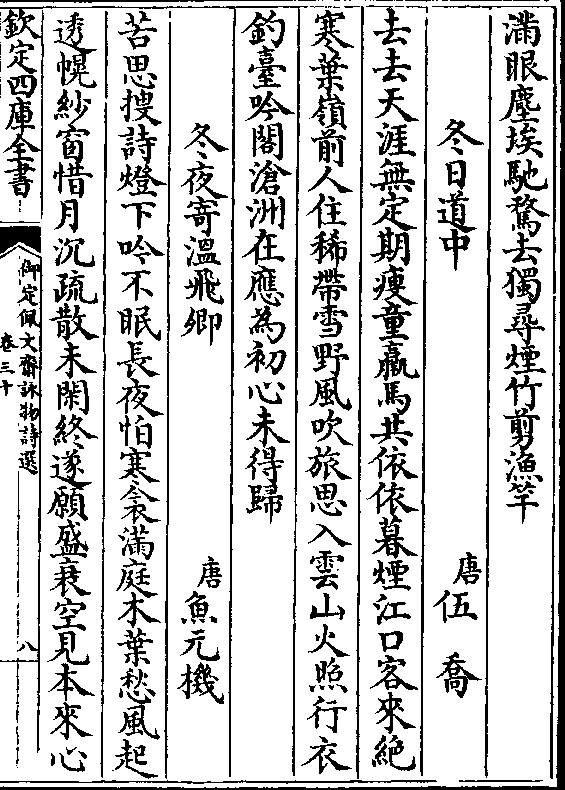 滿眼塵埃馳騖去獨尋煙竹剪漁竿
冬日道中
唐 伍喬
去去天涯無定期瘦童羸馬共依依暮煙江口客來絶
寒葉嶺前人住稀帶雪野風吹旅思入雲山火照行衣
釣臺吟閣滄洲在應為初心未得歸
冬夜寄溫飛卿
唐 魚元機
苦思搜詩燈下吟不眠長夜怕寒衾滿庭木葉愁風起
透幌紗窗惜月沉疏散未閑終遂願盛衰空見本來心
欽定四庫全書
御定佩文齋詠物詩選
卷三十
八